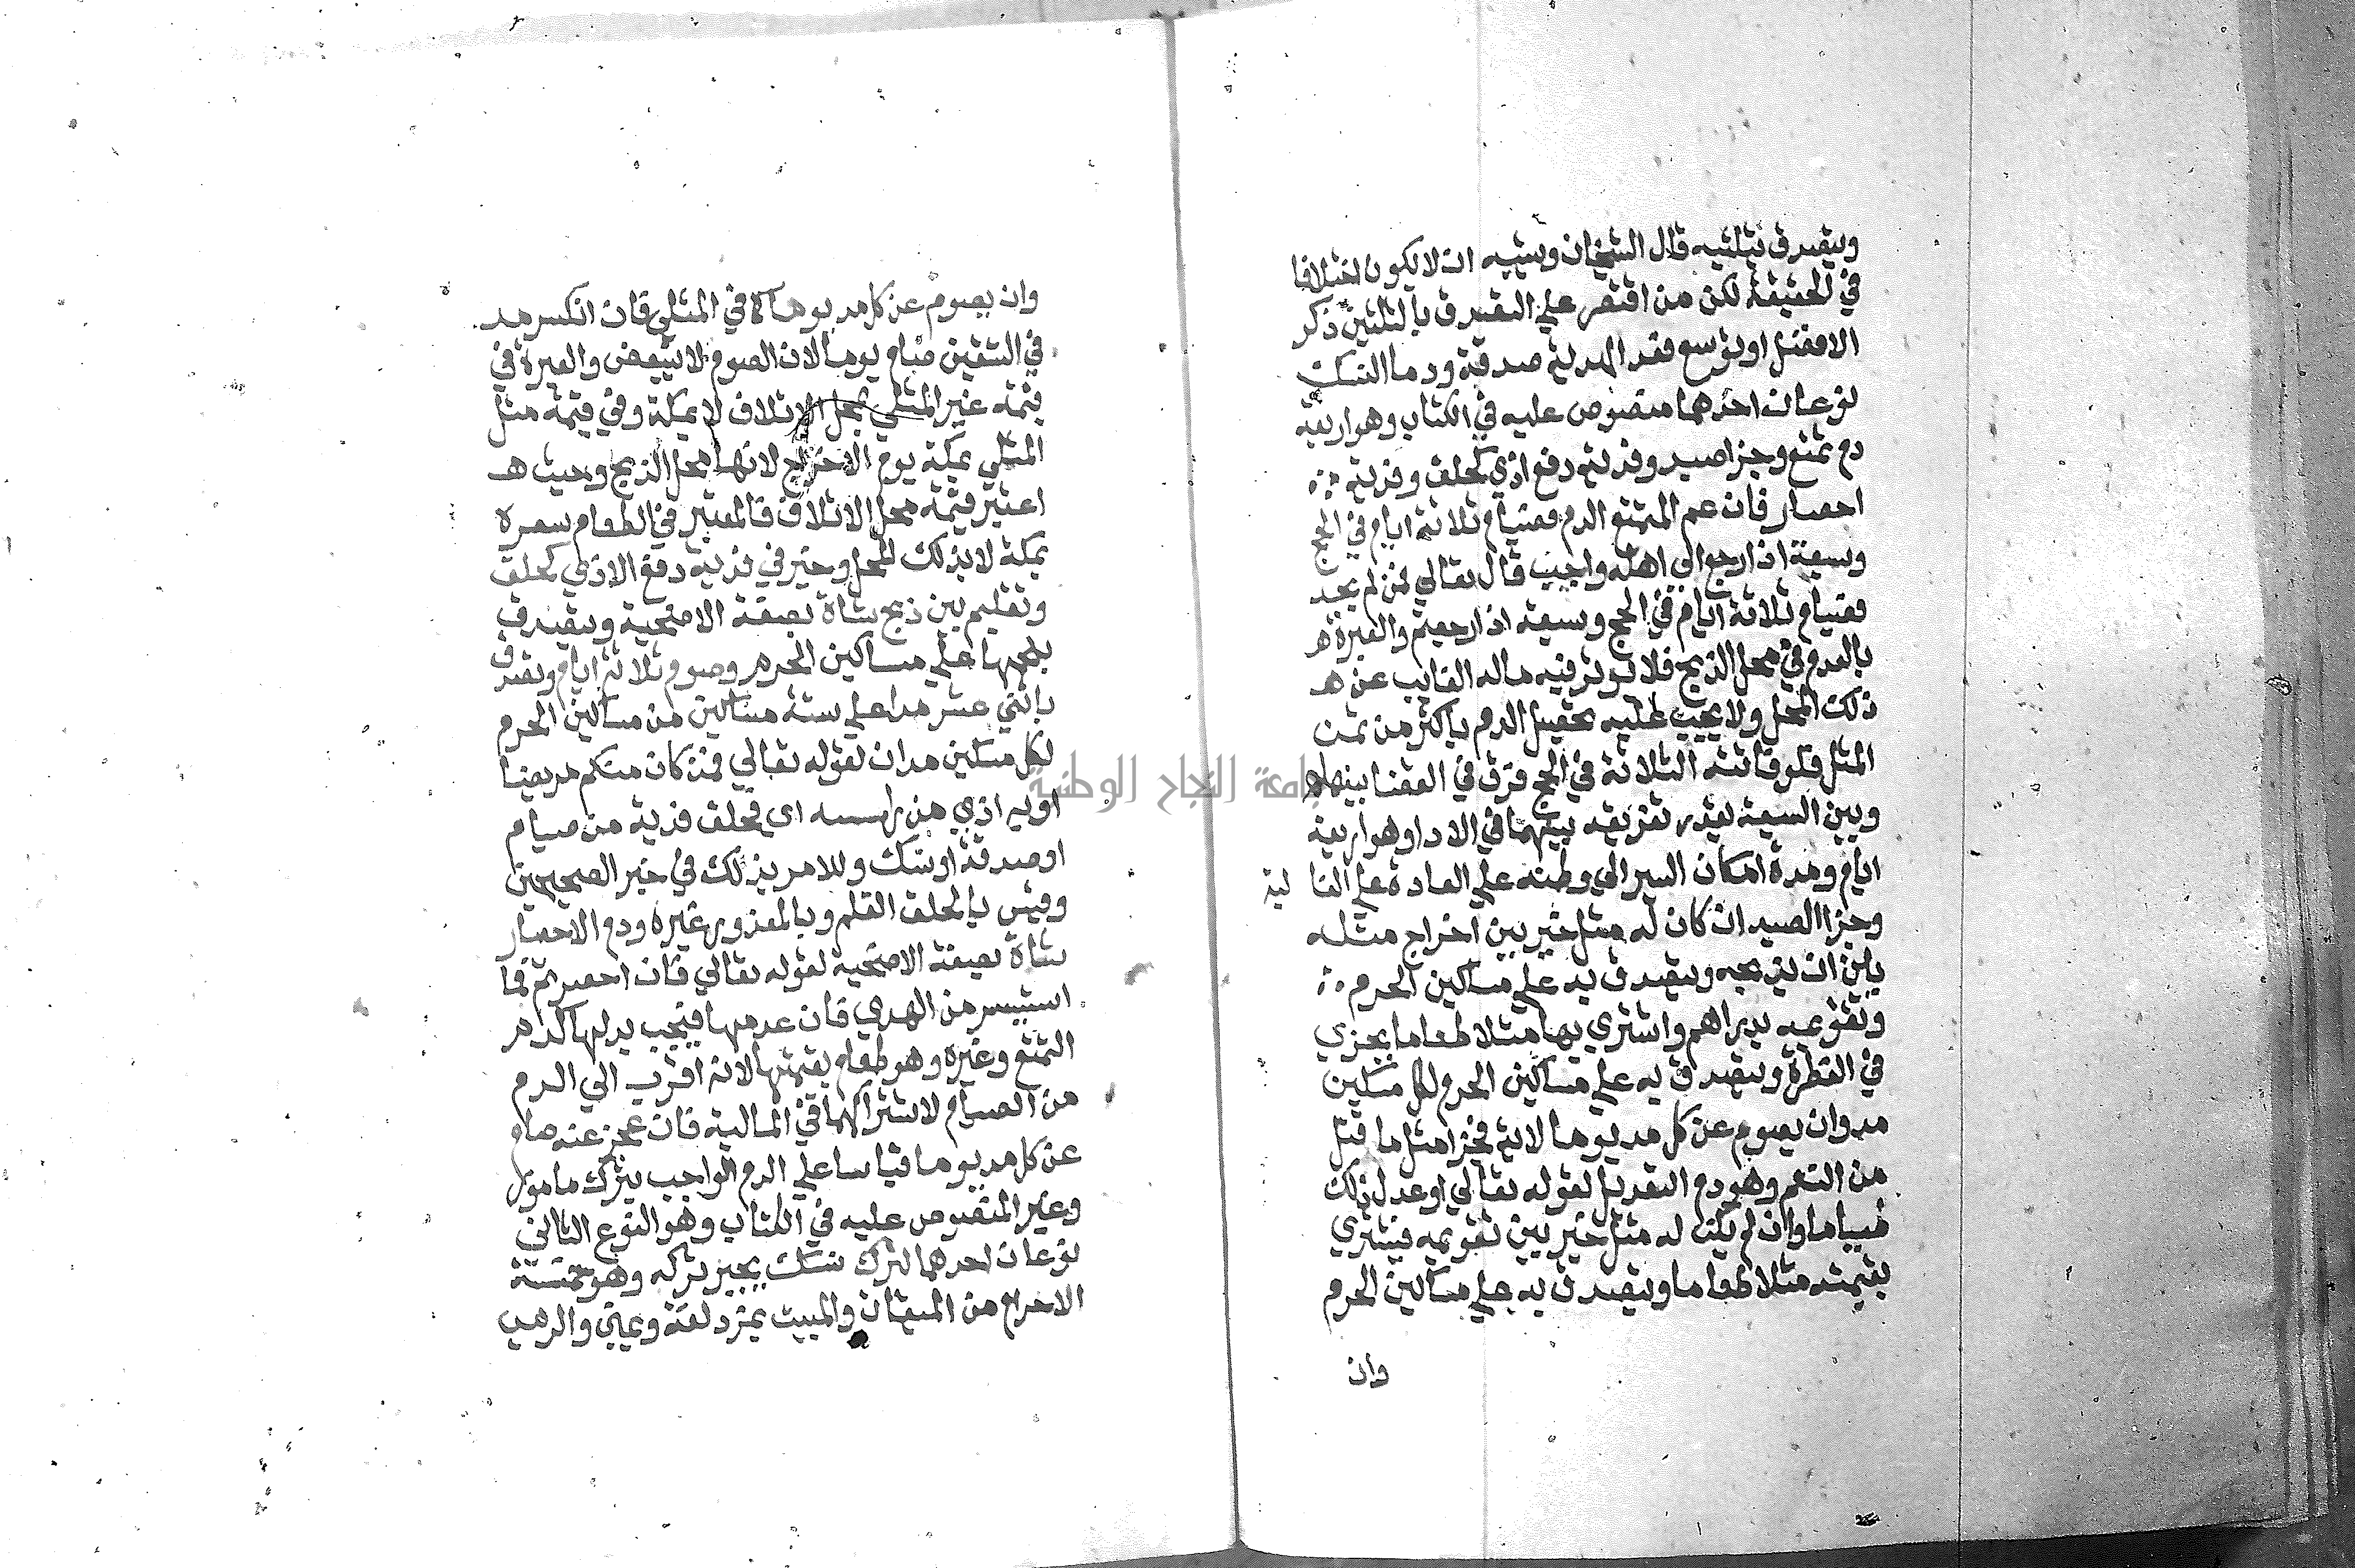 ويتصدق بثلثيه قال الشيخان ويشبه ان لا يكون اختلافا
في الحقيقة لكن من اقتصر علي التصدق بالثلثين ذكر
الافضل او توسع فعد الهدية صدقة ودما النسك
نوعان احدهما منصوص عليه في الكتاب وهو اربعة
دم تمتع وجزا صيد وفدية دفع اذي كحلق وفدية
احصار فان عدم المتمتع الدم فصيام ثلاثة ايام في الحج
وسبعة اذا رجع الي اهله واجب قال تعالي فمن لم يجد
فصيام ثلاثة ايام في الحج وسبعة اذا رجعتم والعبرة ه
بالعدم في محل الذبح فلا يوثر فيه ماله الغايب عن هـ
ذلك المحل ولا يجب عليه تحصيل الدم باكثر من ثمن
المثل فلو فاتته الثلاثة في الحج فرق في القضا بينها ه
وبين السبعة بقدر تفريقه بينهما في الادا وهو اربعة
ايام ومدة امكان السير الي وطنه علي العادة علي الغا لبة
وجزا الصيد ان كان له مثل خير بين اخراج مثله
بان يذبحه ويتصدق به علي مساكين الحرم
وتقويمه بدراهم واشتري بها مثلا طعاما يجزي
في الفطرة ويتصدق به علي مساكين الحرم لكل مسكين
مد وان يصوم عن كل مد يوما لاية فجزا مثل ما قتل
من النعم وهو دم التعديل لقوله تعالي او عدل ذلك
صياما وان لم يكن له مثل خير بين تقويمه فيشتري
بقيمته مثلا طعاما ويتصدق به علي مساكين الحرم
وان
وان يصوم عن كل مد يوما كما في المثلي فان انكسر مد
في الشقين صام يوما لان الصوم لا يتبعض والعبرة في
قيمة غير المثلي بمحل الاتلاف لا بمكة وفي قيمة مثل
المثلي بمكة يوم الاخراج لانها محل الذبح وحيث هـ
اعتبر قيمة محل الاتلاف فالمعتبر في الطعام سعره
بمكة لا بذلك المحل وخير في فدية دفع الاذي كحلق
وتقليم بين ذبح شاة بصفة الاضحية ويتصدق
بلحمها علي مساكين الحرم وصوم ثلاثة ايام وتصدق
باثني عشر مدا علي ستة مساكين من مساكين الحرم
لكل مسكين مدان لقوله تعالي فمن كان منكم مريضا
او به اذي من راسه اي فحلق فدية من صيام
او صدقة او نسك وللامر بذلك في خبر الصحيحين
وقيس بالحلق القلم وبالمعذور غيره ودم الاحصار
شاة بصفة الاضحية لقوله تعالي فان احصرتم فما
استيسر من الهدي فان عدمها فيجب بدلها كدم
التمتع وغيره وهو طعام بقيمتها لانه اقرب الي الدم
من الصيام لاشتراكهما في المالية فان عجز عنه صام
عن كل مد يوما قياسا علي الدم الواجب بترك مامور
وغير المنصوص عليه في الكتاب وهو النوع الثاني
نوعان احدهما لترك نسك يجبر تركه وهو خمسة
الاحرام من الميقات والمبيت بمزدلفة وبمني والرمي
جامعة النجاح الوطنية